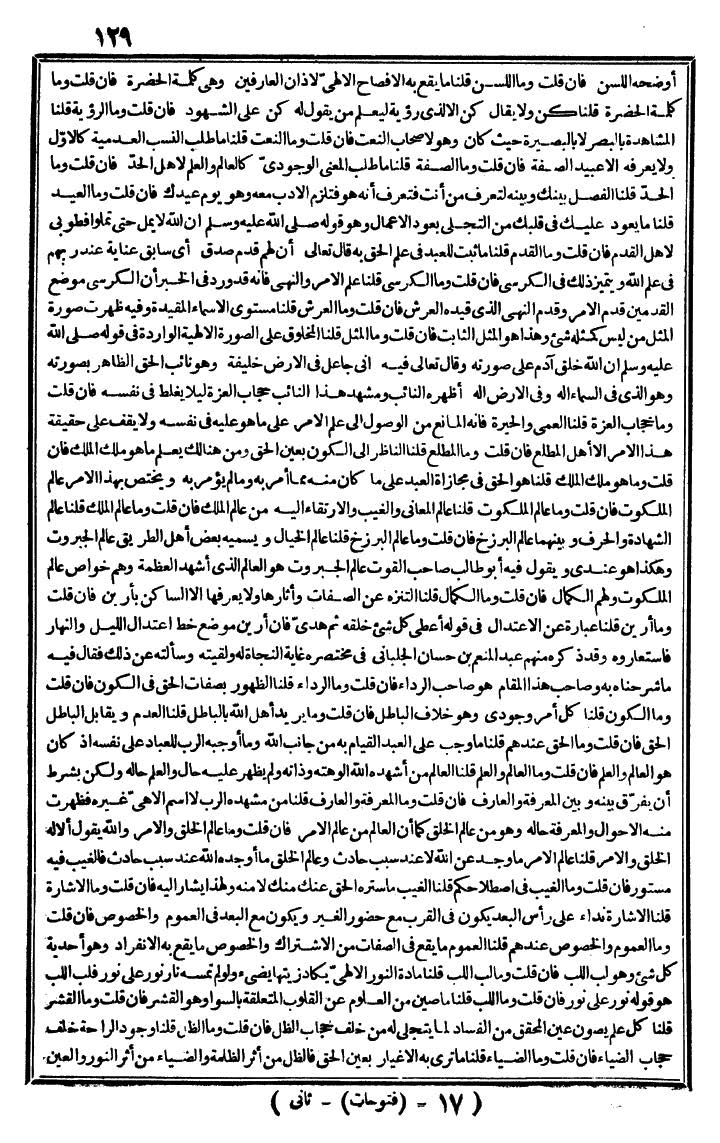 ١٢٩
أوضحه اللسن فان قلت وما اللسن قلنا ما يقع به الافصاح الالهىّ لاذان العارفين وهى كلمة الحضرة فان قلت وما
كلمة الحضرة قلنا كن ولا يقال كن الا لذى رؤية ليعلم من يقول له كن على الشهود فان قلت وما الرؤية قلنا
المشاهدة بالبصر لا بالبصيرة حيث كان وهو لاصحاب النعت فان قلت وما النعت قلنا ما طلب النسب العدمية كالاوّل
ولا يعرفه الا عبيد الصفة فان قلت وما الصفة قلنا ما طلب المعنى الوجودىّ كالعالم والعلم لاهل الحدّ فان قلت وما
الحدّ قلنا الفصل بينك وبينه لتعرف من أنت فتعرف أنه هو فتلزم الادب معه وهو يوم عيدك فان قلت وما العيد
قلنا ما يعود عليك فى قلبك من التجلى بعود الاعمال وهو قوله صلى الله عليه وسلم ان الله لا يمل حتى تملوا فطوبى
لاهل القدم فان قلت وما القدم قلنا ما ثبت للعبد فى علم الحق به قال تعالى أن لهم قدم صدق أى سابق عناية عند ربهم
فى علم الله ويتميز ذلك فى الكرسى فان قلت وما الكرسى قلنا علم الامر والنهى فانه قد ورد فى الخبر أن الكرسى موضع
القدمين قدم الامر وقدم النهى الذى قيده العرش فان قلت وما العرش قلنا مستوى الاسماء المقيدة وفيه ظهرت صورة
المثل من ليس كمثله شئ وهذا هو المثل الثابت فان قلت وما المثل قلنا المخلوق على الصورة الالهية الواردة فى قوله صلى الله
عليه وسلم ان الله خلق آدم على صورته وقال تعالى فيه انى جاعل فى الارض خليفة وهو نائب الحق الظاهر بصورته
وهو الذى فى السماء اله وفى الارض اله أظهره النائب ومشهد هذا النائب حجاب العزة ليلا يغلط فى نفسه فان قلت
وما حجاب العزة قلنا العمى والحيرة فانه المانع من الوصول الى علم الامر على ما هو عليه فى نفسه ولا يقف على حقيقة
هذا الامر الا أهل المطلع فان قلت وما المطلع قلنا الناظر الى الكون بعين الحق ومن هنالك يعلم ما هو ملك الملك فان
قلت وما هو ملك الملك قلنا هو الحق فى مجازاة العبد على ما كان منه مما أمر به وما لم يؤمر به ويختص بهذا الامر عالم
الملكوت فان قلت وما عالم الملكوت قلنا عالم المعانى والغيب والارتقاء اليه من عالم الملك فان قلت وما عالم الملك قلنا عالم
الشهادة والحرف وبينهما عالم البرزخ فان قلت وما عالم البرزخ قلنا عالم الخيال ويسميه بعض أهل الطريق عالم الجبروت
وهكذا هو عندى ويقول فيه أبو طالب صاحب القوت عالم الجبروت هو العالم الذى أشهد العظمة وهم خواص عالم
الملكوت ولهم الكمال فان قلت وما الكمال قلنا التنزه عن الصفات وآثارها ولا يعرفها الا الساكن بأرين فان قلت
وما أرين قلنا عبارة عن الاعتدال فى قوله أعطى كل شئ خلقه ثم هدىّ فان أرين موضع خط اعتدال الليل والنهار
فاستعاروه وقد ذكره منهم عبد المنعم بن حسان الجلبانى فى مختصره غاية النجاة له ولقيته وسألته عن ذلك فقال فيه
ما شرحناه به وصاحب هذا المقام هو صاحب الرداء فان قلت وما الرداء قلنا الظهور بصفات الحق فى الكون فان قلت
وما الكون قلنا كل أمر وجودى وهو خلاف الباطل فان قلت وما يريد أهل الله بالباطل قلنا العدم ويقابل الباطل
الحق فان قلت وما الحق عندهم قلنا ما وجب على العبد القيام به من جانب الله وما أوجبه الرب للعباد على نفسه اذ كان
هو العالم والعلم فان قلت وما العالم والعلم قلنا العالم من أشهده الله الوهته وذاته ولم يظهر عليه حال والعلم حاله ولكن بشرط
أن يفرّق بينه وبين المعرفة والعارف فان قلت وما المعرفة والعارف قلنا من مشهده الرب لا اسم الاهىّ غيره فظهرت
منه الاحوال والمعرفة حاله وهو من عالم الخلق كما أن العالم من عالم الامر فان قلت وما عالم الخلق والامر والله يقول ألا له
الخلق والامر قلنا عالم الامر ما وجد عن الله لا عند سبب حادث وعالم الخلق ما أوجده الله عند سبب حادث فالغيب فيه
مستور فان قلت وما الغيب فى اصطلاحكم قلنا الغيب ما ستره الحق عنك منك لا منه ولهذا يشار اليه فان قلت وما الاشارة
قلنا الاشارة نداء على رأس البعد يكون فى القرب مع حضور الغير ويكون مع البعد فى العموم والخصوص فان قلت
وما العموم والخصوص عندهم قلنا العموم ما يقع فى الصفات من الاشتراك والخصوص ما يقع به الانفراد وهو أحدية
كل شئ وهو لب اللب فان قلت وما لب اللب قلنا مادة النور الالهىّ يكاد زيتها يضىء ولو لم تمسه نار نور على نور فلب اللب
هو قوله نور على نور فان قلت وما اللب قلنا ما صين من العلوم عن القلوب المتعلقة بالسوا وهو القشر فان قلت وما القشر
قلنا كل علم يصون عين المحقق من الفساد لما يتجلى له من خلف حجاب الظل فان قلت وما الظل قلنا وجود الراحة خلف
حجاب الضياء فان قلت وما الضياء قلنا ما ترى به الاغيار بعين الحق فالظل من أثر الظلمة والضياء من أثر النور والعين
( ١٧ - (فتوحات) - ثانى )